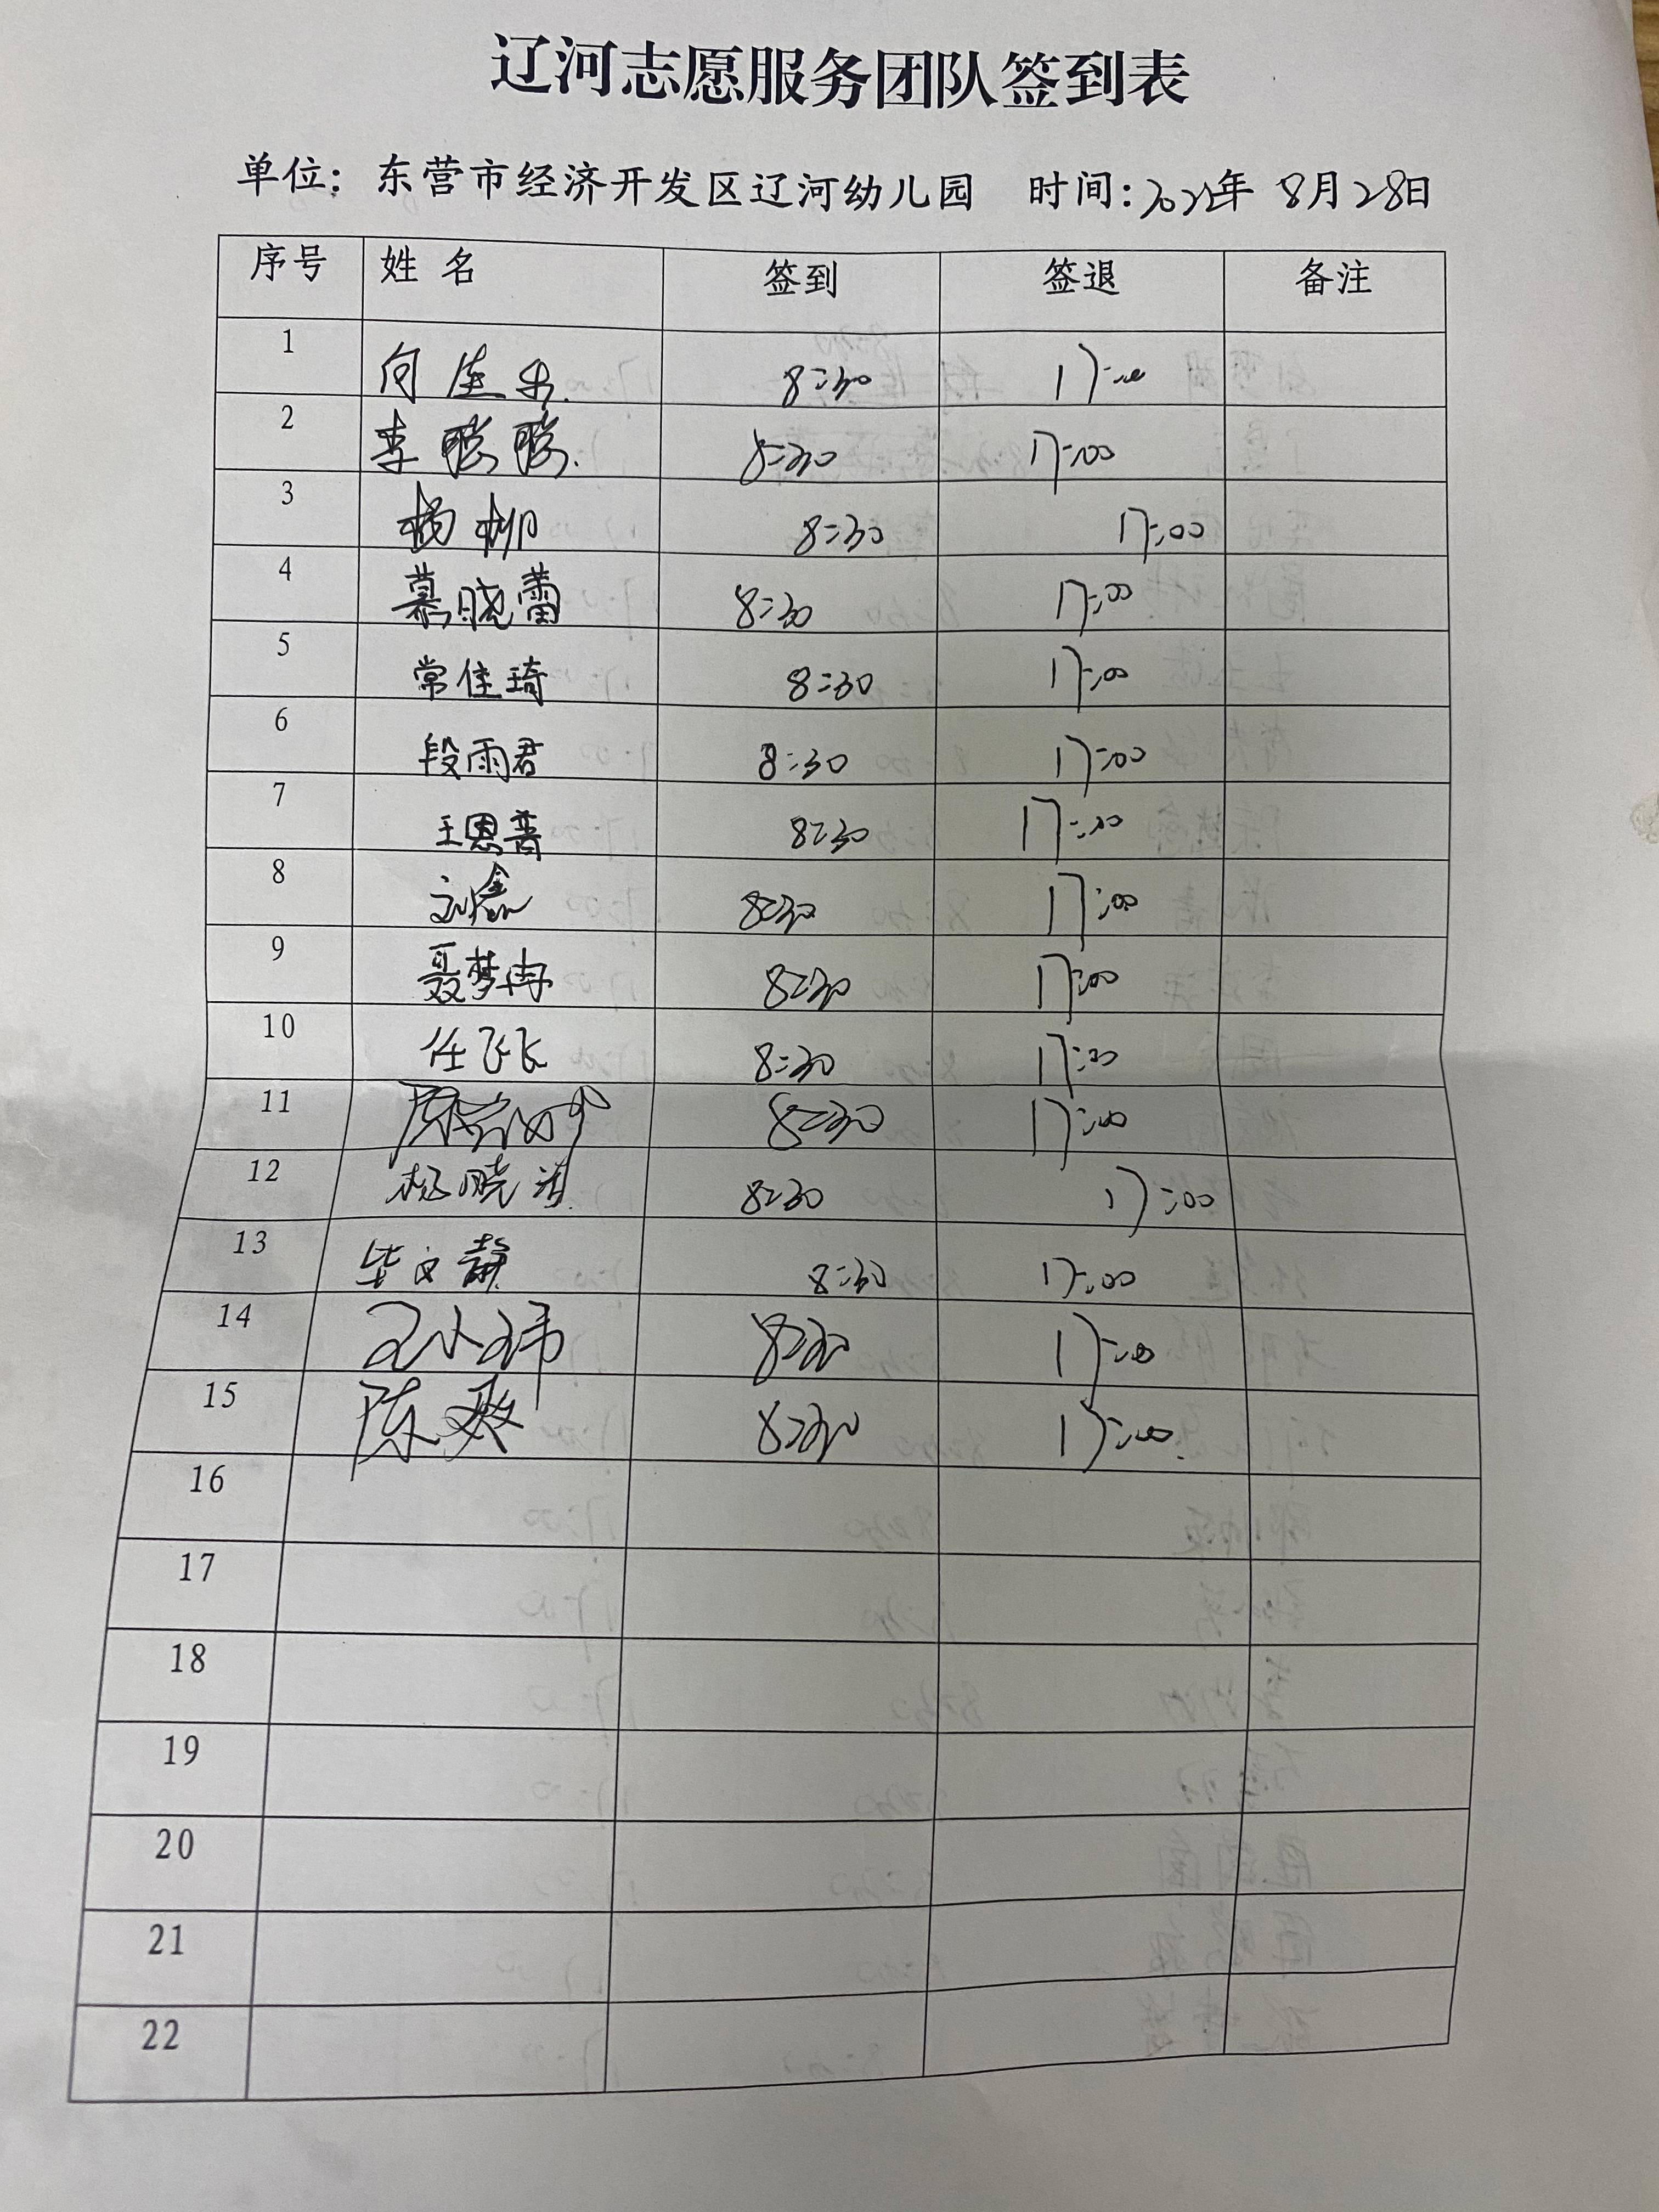 辽河志愿服务团队签到表
单位：东营市经济开发区辽河幼儿园 时间：2022年 8月28日
序号 姓 名 签到 签退 备注
1 8:30 17:00
2 李 8:30 17:00
3 杨柳 8:30 17:00
4 慕晓蕾 8:30 17:00
5 常佳琦 8:30 17:00
6 段雨君 8:30 17:00
7 王恩普 8:30 17:00
8 刘鑫 8:30 17:00
9 聂梦冉 8:30 17:00
10 任飞飞 8:30 17:00
11 8:30 17:00
12 杨晓 8:30 17:00
13 毕文静 8:30 17:00
14 王小玮 8:30 17:00
15 陈爽 8:30 17:00
16
17
18
19
20
21
22